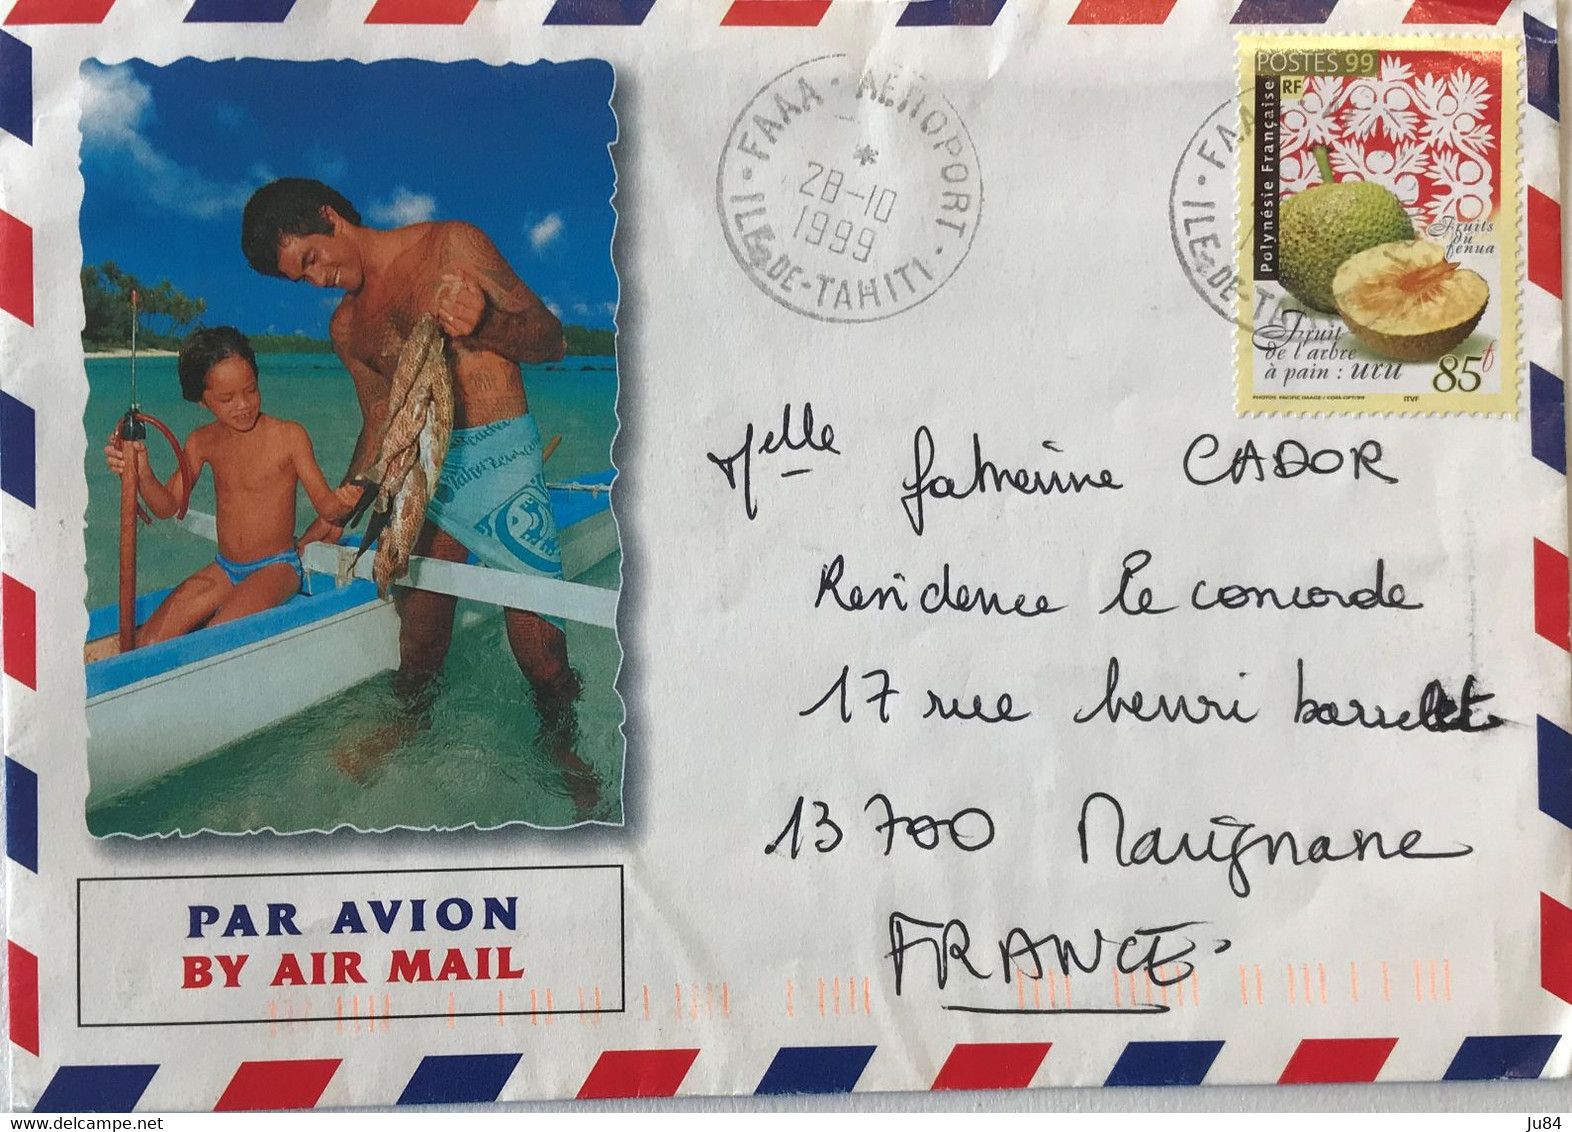 FAAA - AÉROPORT
28-10
1999
ILE-DE-TAHITI
POSTES 99
RF
Polynésie Française
Fruits
du
fenua
Fruit
de l'arbre
à pain : uru
85f
PHOTOS PACIFIC IMAGE / COM-OPT/99
ITVF
Melle Catherine CADOR
Residence le concorde
17 rue henri barrelet
13700 Marignane
FRANCE
PAR AVION
BY AIR MAIL
ju84